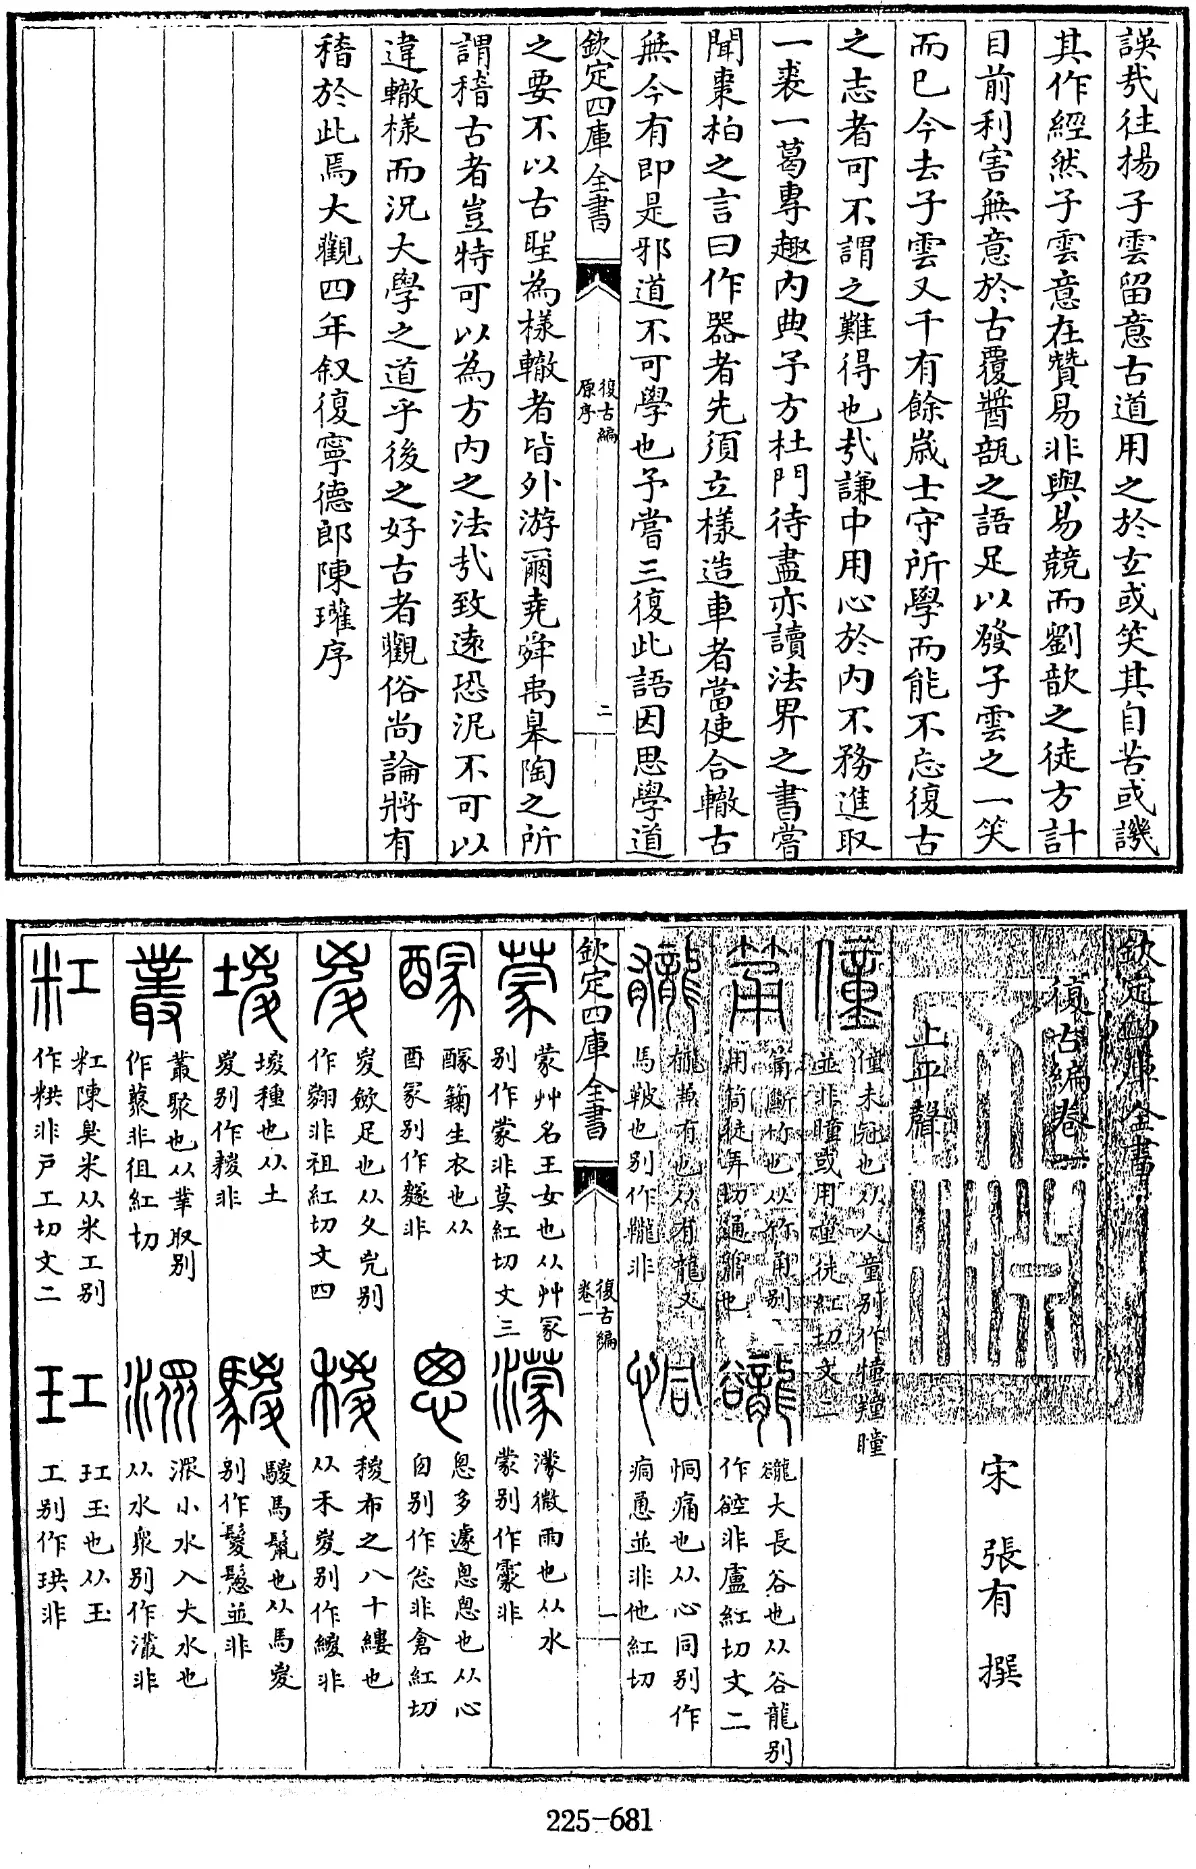 誤㢤往揚子雲留意古道用之於玄或笑其自苦或譏
其作經然子雲意在贊易非與易競而劉歆之徒方計
目前利害無意於古覆醬瓿之語足以發子雲之一笑
而已今去子雲又千有餘歲士守所學而能不忘復古
之志者可不謂之難得也㢤謙中用心於内不務進取
一裘一葛專趣内典予方杜門待盡亦讀法界之書嘗
聞棗柏之言曰作器者先須立樣造車者當使合轍古
無今有即是邪道不可學也予嘗三復此語因思學道
欽定四庫全書
復古編
原序
二
之要不以古聖為樣轍者皆外游爾堯舜禹皋陶之所
謂稽古者豈特可以為方内之法㢤致遠恐泥不可以
違轍樣而況大學之道乎後之好古者觀俗尚論將有
稽於此焉大觀四年叙復寧德郎陳瓘序
欽定四庫全書
復古編卷一
宋 張有 撰
上平聲
僮
僮未冠也从人童别作犝羶瞳
並非瞳或用穜徒紅切文二
筩
筩斷竹也从竹甬别
用筒徒弄切通簫也
豅
豅大長谷也从谷龍别
作硿非盧紅切文二
龓
龓兼有也从有龍又
馬鞁也别作䡁非
恫
恫痛也从心同别作
痌恿並非他紅切
欽定四庫全書
復古編
卷一
一
蒙
蒙艸名王女也从艸冡
别作蒙非莫紅切文三
濛
濛微雨也从水
蒙别作霿非
醵
醵籟生衣也从
酉冡别作䵆非
悤
悤多遽悤悤也从心
囪别作忩非倉紅切
㚇
㚇斂足也从夊兇别
作翪非祖紅切文四
稯
稯布之八十縷也
从禾㚇别作緵非
堫
堫種也从土
㚇别作䎫非
騣
騣馬鬣也从馬㚇
别作鬉騘並非
叢
叢聚也从丵取别
作藂非徂紅切
潀
潀小水入大水也
从水眾别作灇非
粠
粠陳臭米从米工别
作粠非戸工切文二
玒
玒玉也从玉
工别作珙非
225-681